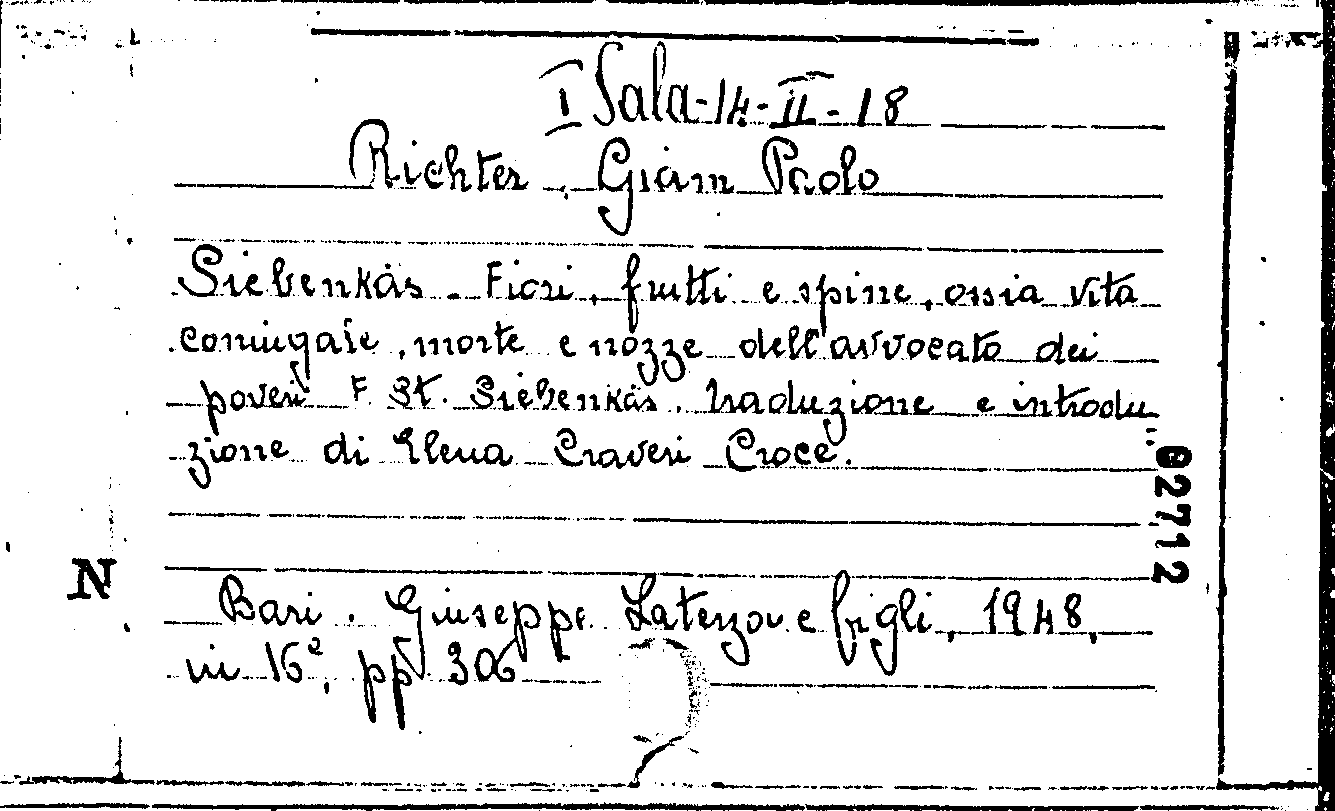 I Sala-14-II-18
Richter, Giam Paolo
Siebenkäs. Fiori, frutti e spine, ossia vita
coniugale, morte e nozze dell'avvocato dei
poveri F. St. Siebenkäs. Traduzione e introdu
zione di Elena Craveri Croce.
02712
N
Bari. Giuseppe Laterza e figli, 1948,
in 16°, pp 306